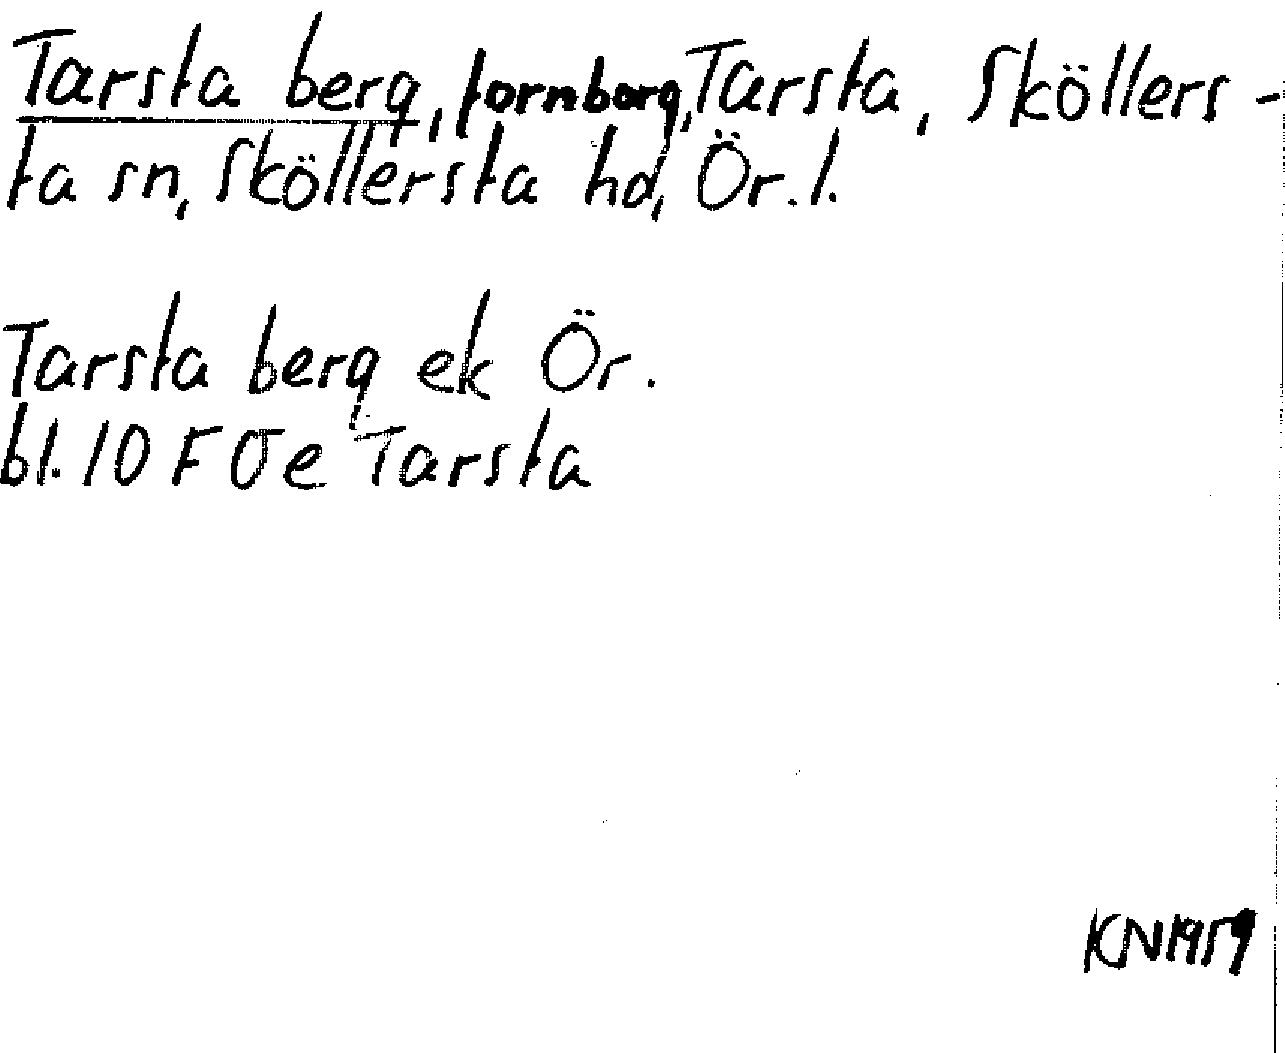 Tarsta berg, fornborg, Tarsta, Sköllers-
ta sn, Sköllersta hd, Ör. l.
Tarsta berg ek Ör.
bl. 10 F 0 e Tarsta
KN 1959